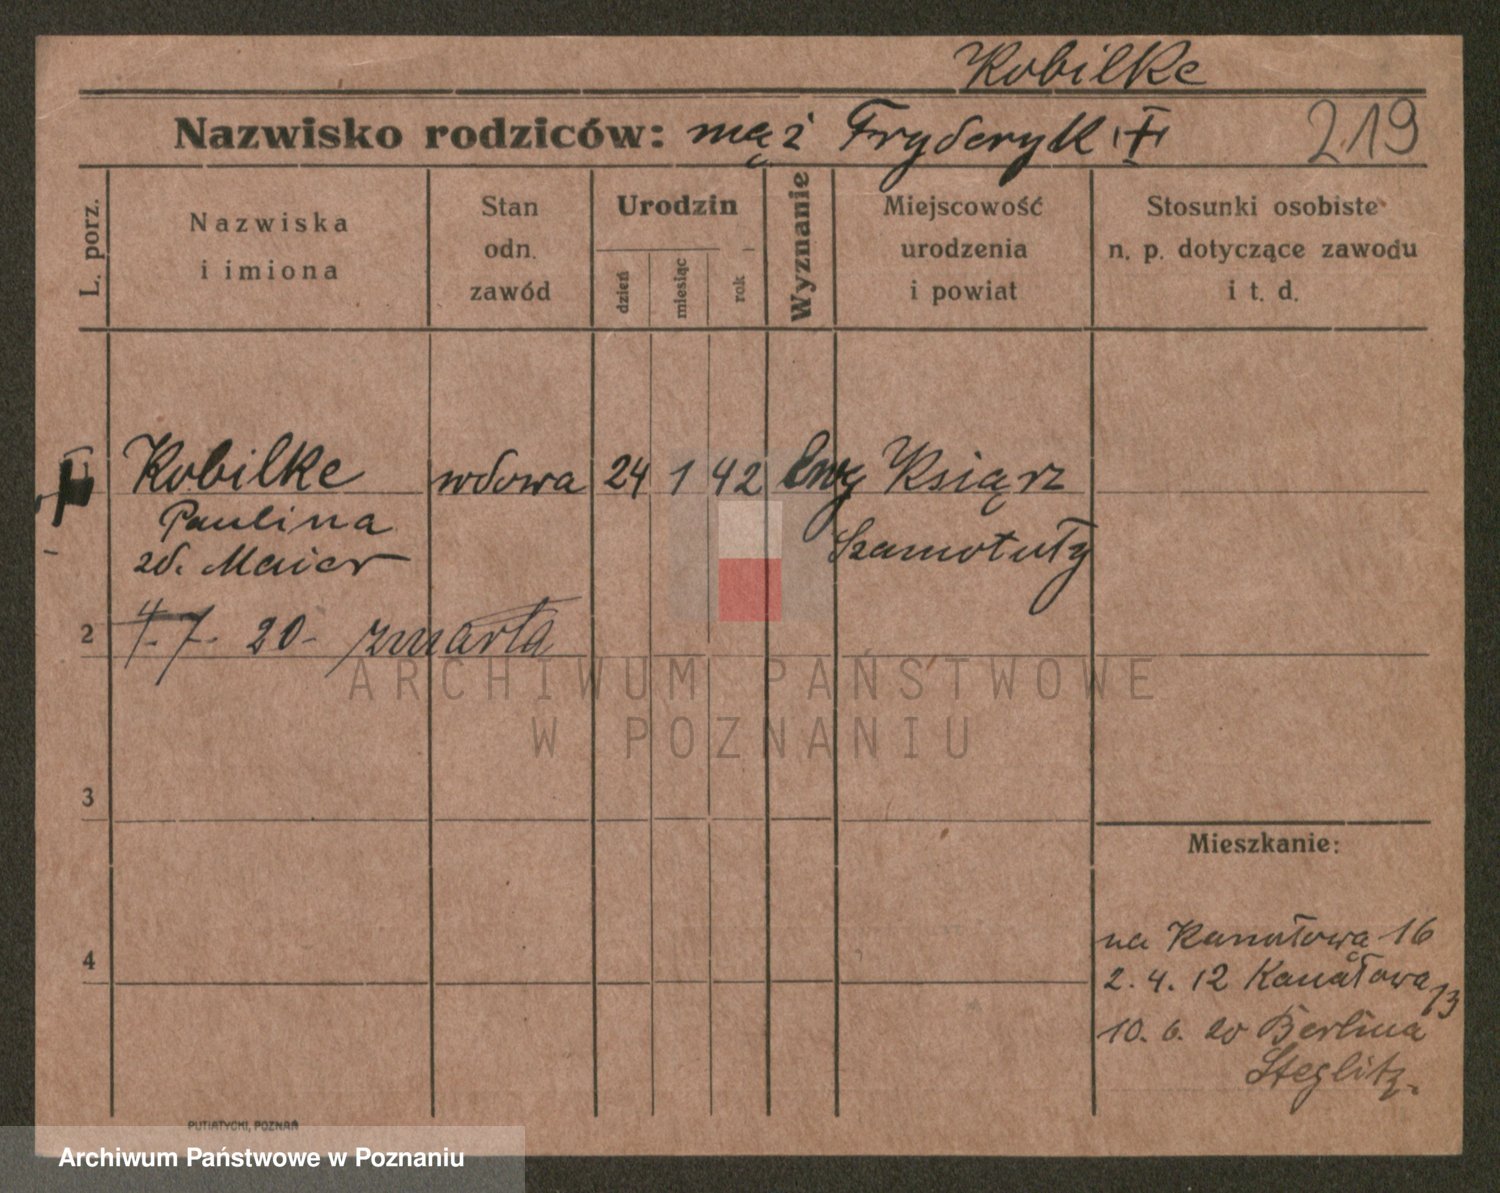 Kobilke
Nazwisko rodziców: mąż Fryderyk
219
L. porz.
Nazwiska
i imiona
Stan
odn.
zawód
Urodzin
dzień
miesiąc
rok
Wyznanie
Miejscowość
urodzenia
i powiat
Stosunki osobiste
n. p. dotyczące zawodu
i t. d.
Kobilke wdowa 24 1 42 ewg Książ
Paulina Szamotuły
zd. Maier
2 4.7. 20 - zmarła
ARCHIWUM PAŃSTWOWE
W POZNANIU
3
Mieszkanie:
4
na Kanałowa 16
2. 4. 12 Kanałowa 13
10. 6. 20 Berlina
Steglitz.
PUTIATYCKI, POZNAŃ
Archiwum Państwowe w Poznaniu